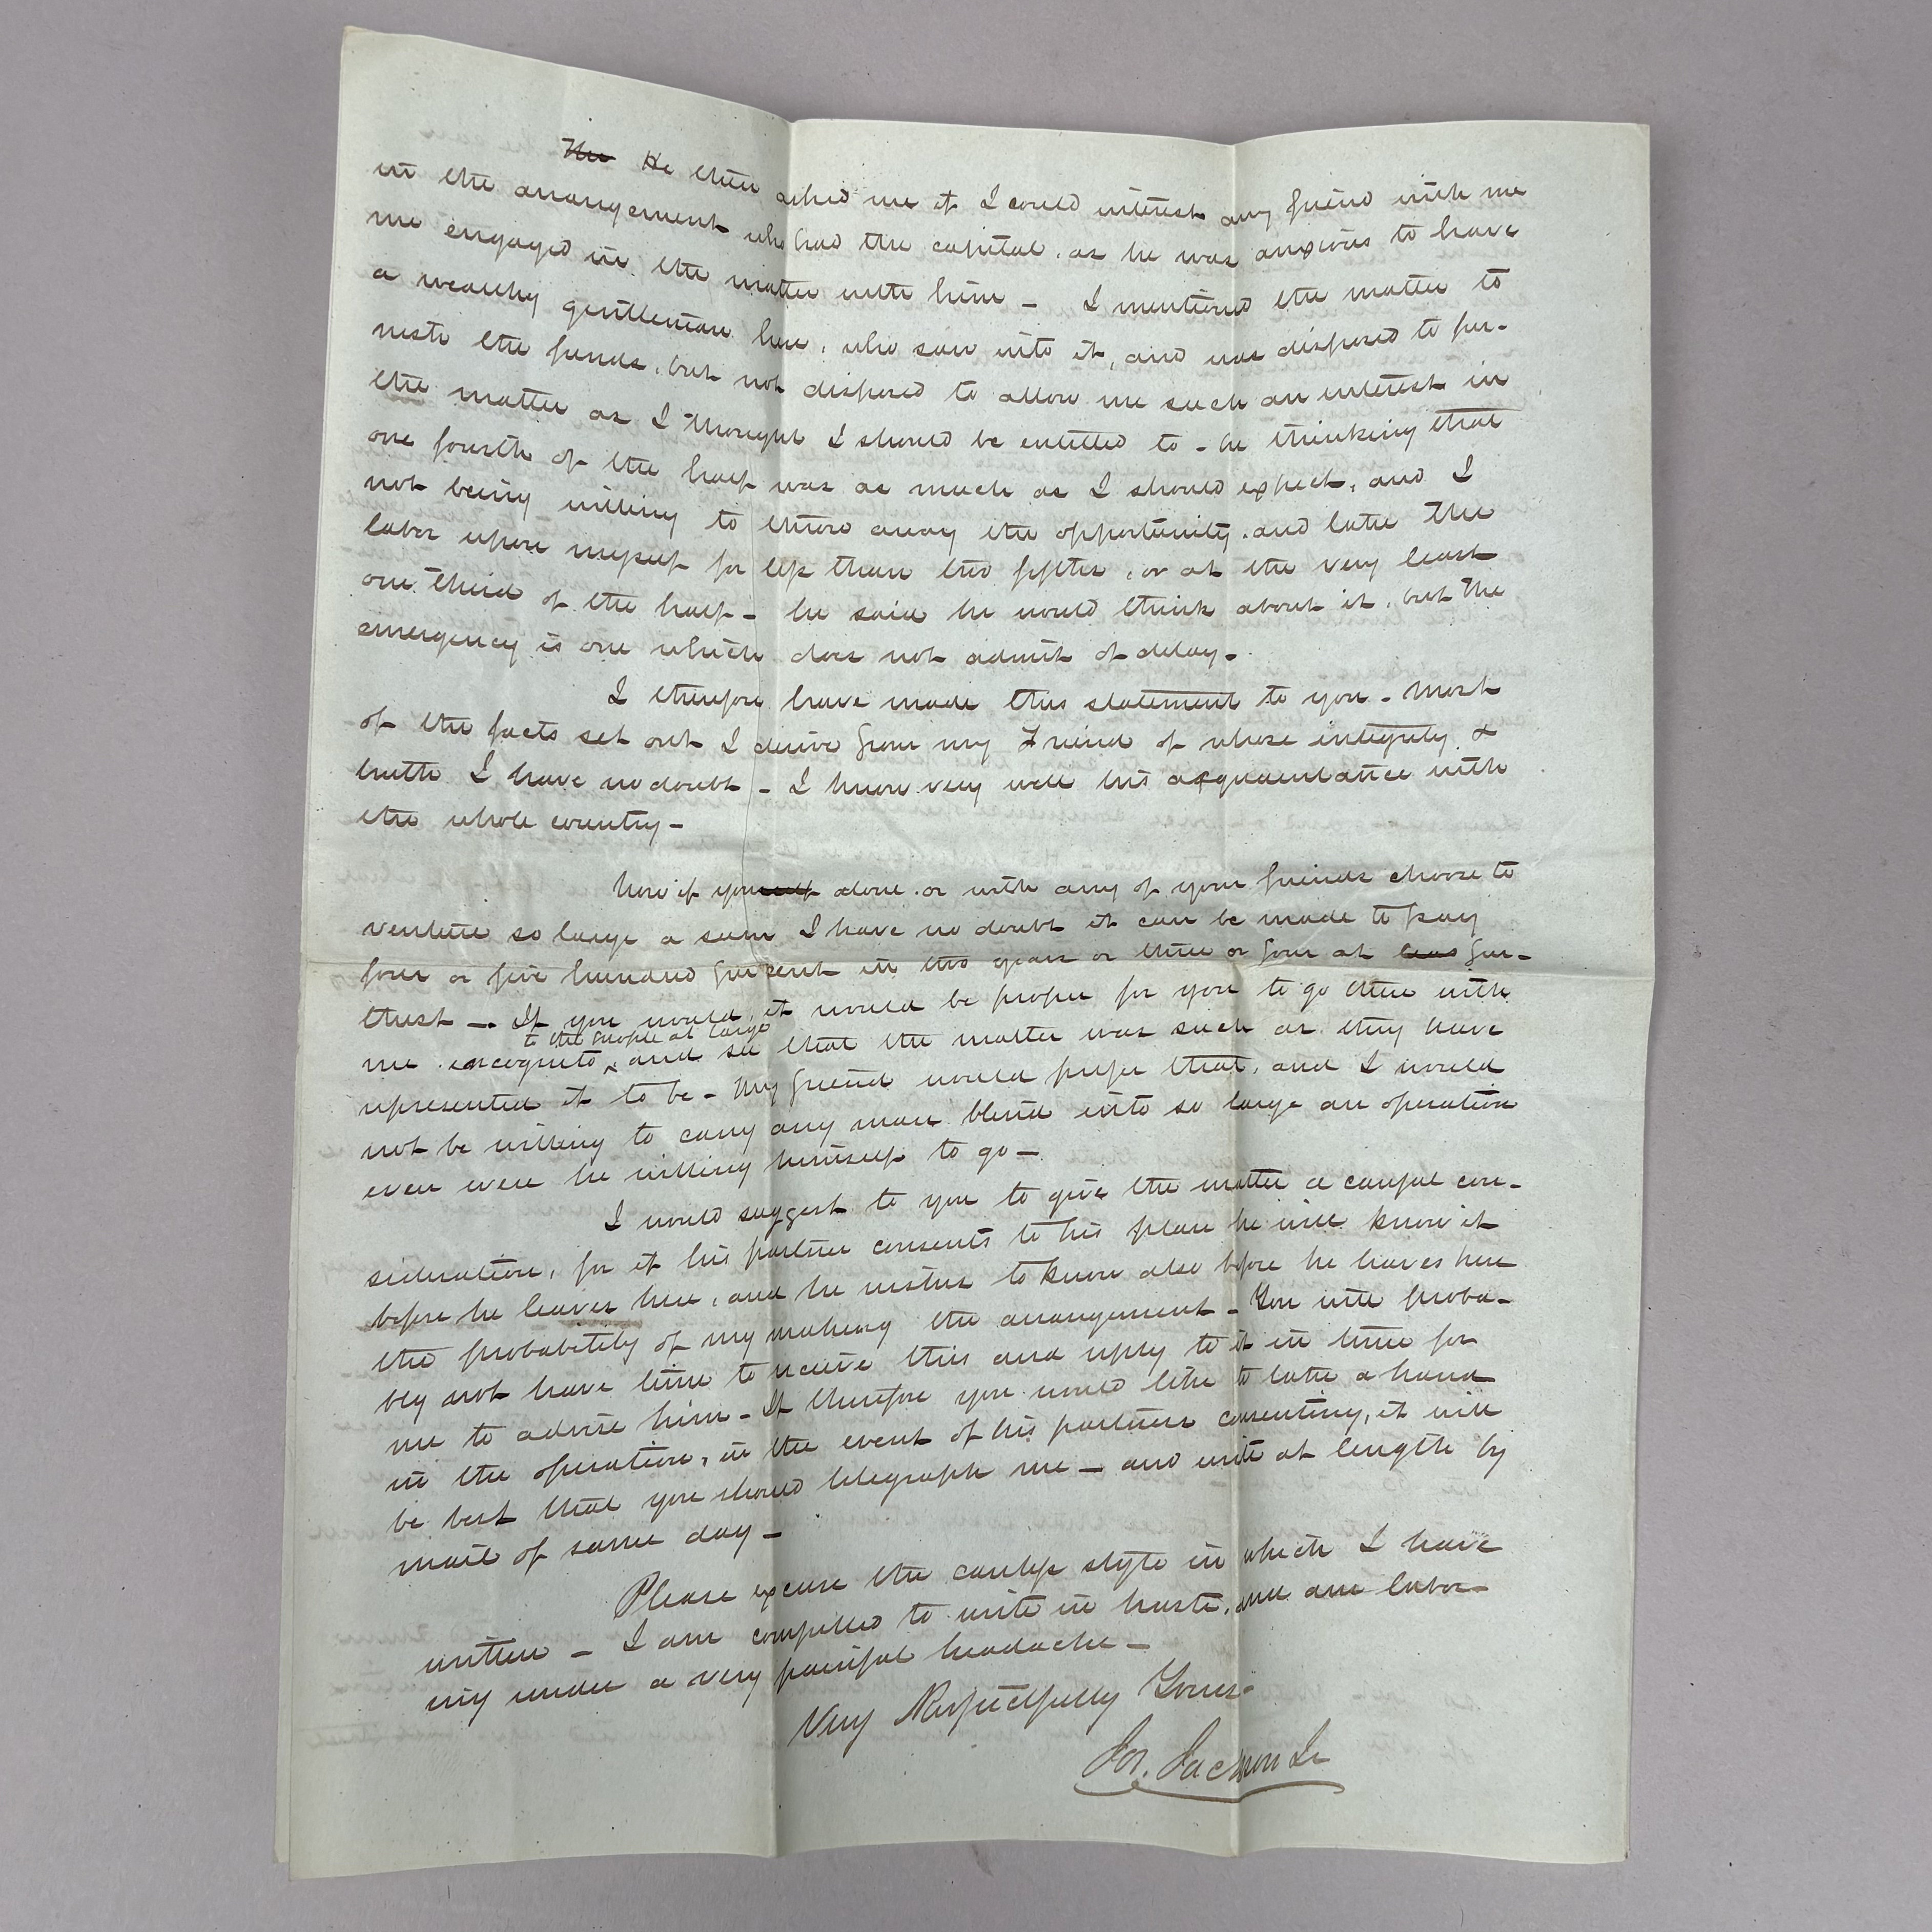 He then asked me if I could interest any friend with me
in the arrangement who had the capital, as he was anxious to have
me engaged in the matter with him — I mentioned the matter to
a wealthy gentleman here, who saw into it, and was disposed to fur-
nish the funds, but not disposed to allow me such an interest in
the matter as I thought I should be entitled to - he thinking that
one fourth of the half was as much as I should expect, and I
not being willing to throw away the opportunity, and take the
labor upon myself for less than two fifths, or at the very least
one third of the half - he said he would think about it, but the
emergency is one which does not admit of delay -
I therefore have made this statement to you - Most
of the facts set out I derive from my Friend of whose integrity &
truth I have no doubt - I know very well his acquaintance with
the whole country -
Now if you alone or with any of your friends choose to
venture so large a sum I have no doubt it can be made to pay
four or five hundred per cent in two years or three or four at fur-
thest — If you would, it would be proper for you to go there with
to the people at large
me incognito, and see that the matter was such as they have
represented it to be - My friend would prefer that, and I would
not be willing to carry any man blind into so large an operation
even were he willing himself to go —
I would suggest to you to give the matter a careful con-
sideration, for if his partner consents to his plan he will know it
before he leaves here, and he wishes to know also before he leaves here
the probability of my making the arrangement - You will proba-
bly not have time to receive this and reply to it in time for
me to advise him - If therefore you would like to take a hand
in the operation, in the event of his partners consenting, it will
be best that you should telegraph me — and write at length by
mail of same day —
Please excuse the careless style in which I have
written — I am compelled to write in haste, and am labor-
ing under a very painful headache —
Very Respectfully Yours
Jos. Jackson Jr